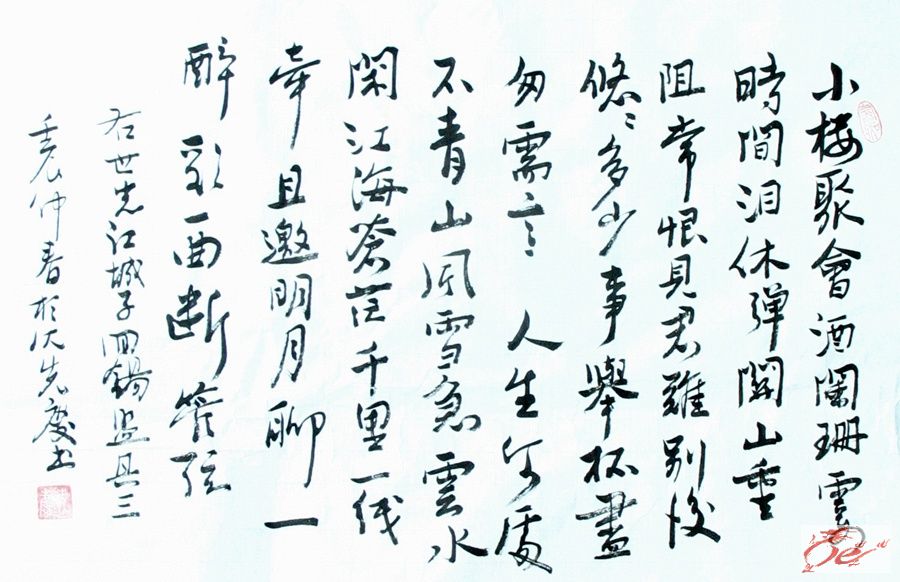 小楼聚會酒闌珊
時間泪休弹關山重
阻常恨見君難别後
悠悠多少事舉杯盡
勿需言人生何處
不青山風雪急雲水
閑江海蒼茫千里一线
牽且邀明月聊一
醉歌一曲断管弦
右世先江城子回錫盟其三
壬辰仲春於先慶书